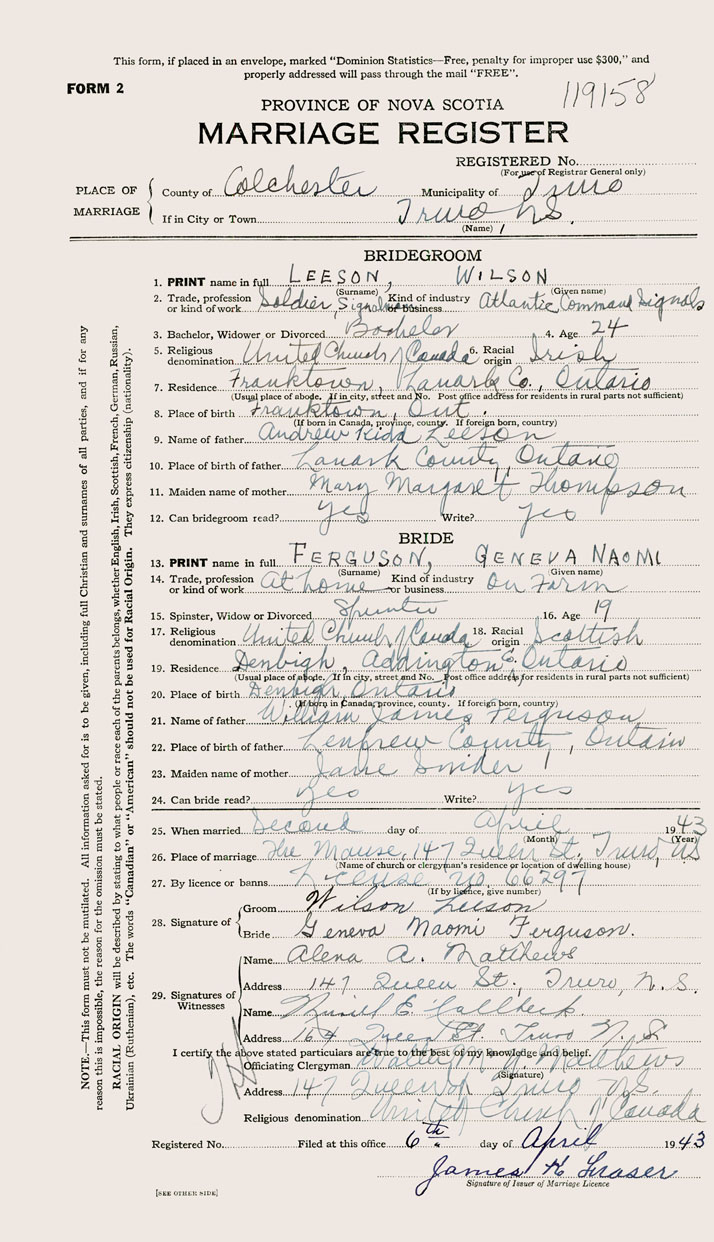 This form, if placed in an envelope, marked "Dominion Statistics—Free, penalty for improper use $300," and
properly addressed will pass through the mail "FREE".
FORM 2
119158
PROVINCE OF NOVA SCOTIA
MARRIAGE REGISTER
REGISTERED No.
(For use of Registrar General only)
PLACE OF MARRIAGE
County of Colchester Municipality of Truro
If in City or Town Truro N.S.
(Name)
BRIDEGROOM
1. PRINT name in full LEESON, WILSON
(Surname) (Given name)
2. Trade, profession or kind of work Soldier, Signalman Kind of industry or business Atlantic Command Signals
3. Bachelor, Widower or Divorced Bachelor 4. Age 24
5. Religious denomination United Church of Canada 6. Racial origin Irish
7. Residence Franktown, Lanark Co., Ontario
(Usual place of abode. If in city, street and No. Post office address for residents in rural parts not sufficient)
8. Place of birth Franktown, Ont.
(If born in Canada, province, county. If foreign born, country)
9. Name of father Andrew Kidd Leeson
10. Place of birth of father Lanark County, Ontario
11. Maiden name of mother Mary Margaret Thompson
12. Can bridegroom read? yes Write? yes
BRIDE
13. PRINT name in full FERGUSON, GENEVA NAOMI
(Surname) (Given name)
14. Trade, profession or kind of work At home Kind of industry or business On Farm
15. Spinster, Widow or Divorced Spinster 16. Age 19
17. Religious denomination United Church of Canada 18. Racial origin Scottish
19. Residence Denbigh, Addington Co. Ontario
(Usual place of abode. If in city, street and No. Post office address for residents in rural parts not sufficient)
20. Place of birth Denbigh, Ontario
(If born in Canada, province, county. If foreign born, country)
21. Name of father William James Ferguson
22. Place of birth of father Renfrew County, Ontario
23. Maiden name of mother Jane Snider
24. Can bride read? yes Write? yes
25. When married Second day of April 1943
(Month) (Year)
26. Place of marriage The Manse, 147 Queen St., Truro, NS
(Name of church or clergyman's residence or location of dwelling house)
27. By licence or banns License No. 66297
(If by licence, give number)
28. Signature of
Groom Wilson Leeson
Bride Geneva Naomi Ferguson.
29. Signatures of Witnesses
Name Alena A. Matthews
Address 147 Queen St., Truro, N.S.
Name E.
Address 164 Queen St. Truro N.S
I certify the above stated particulars are true to the best of my knowledge and belief.
Officiating Clergyman Matthews
(Signature)
Address 147 Queen St Truro N.S.
Religious denomination United Church of Canada
Registered No. Filed at this office 6th day of April 1943
James H Fraser
Signature of Issuer of Marriage Licence
[SEE OTHER SIDE]
NOTE.—This form must not be mutilated. All information asked for is to be given, including full Christian and surnames of all parties, and if for any
reason this is impossible, the reason for the omission must be stated.
RACIAL ORIGIN will be described by stating to what people or race each of the parents belongs, whether English, Irish, Scottish, French, German, Russian,
Ukrainian (Ruthenian), etc. The words "Canadian" or "American" should not be used for Racial Origin. They express citizenship (nationality).